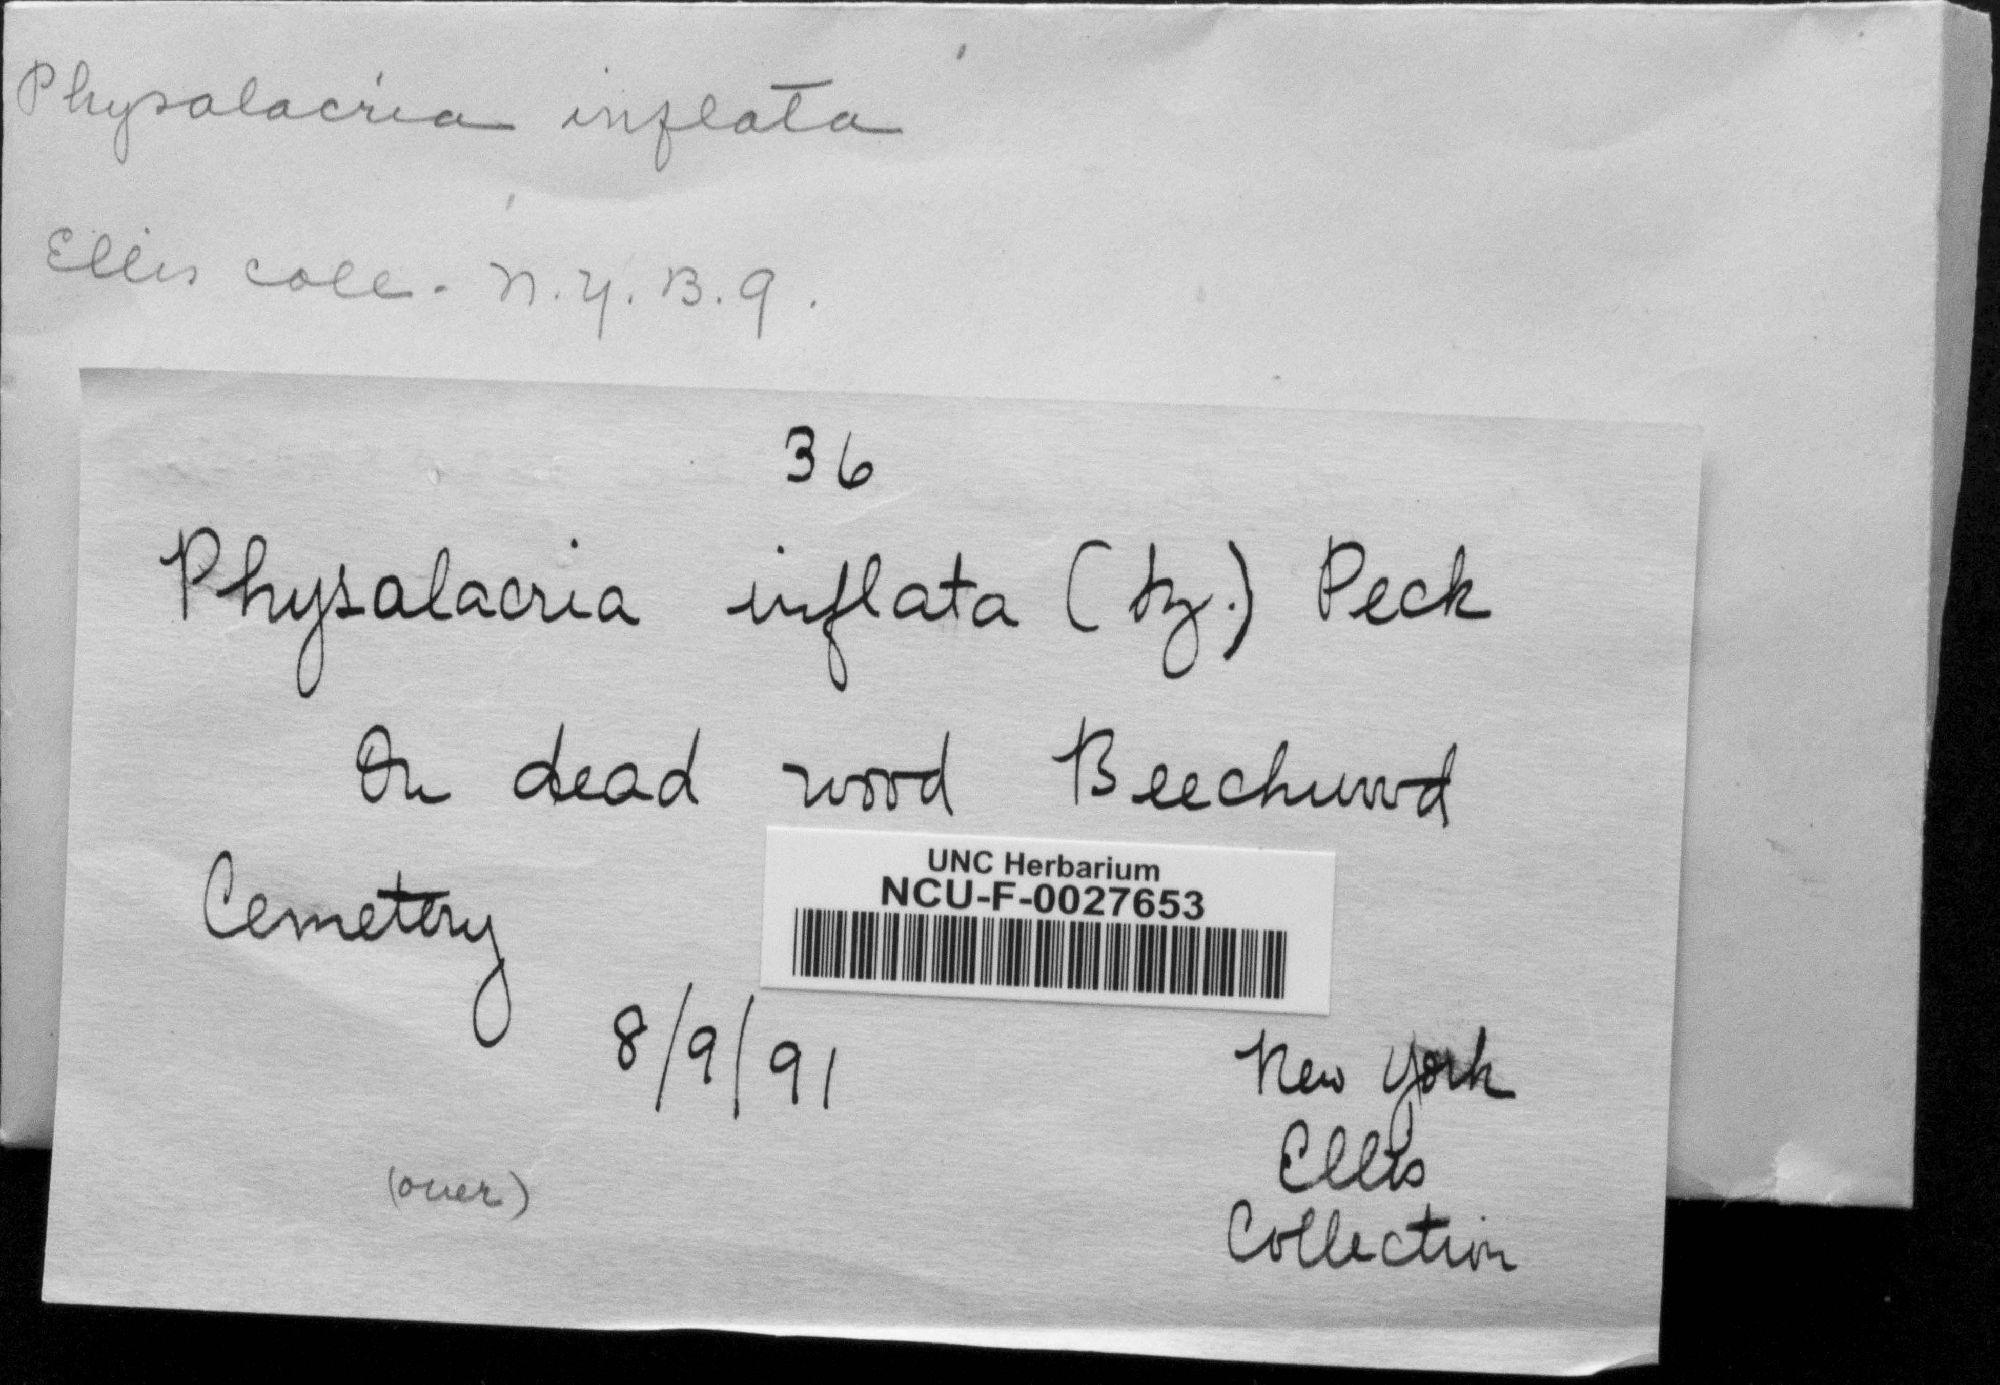 Physalacria inflata
Ellis coll. N.Y.B.G.
36
Physalacria inflata (Fr.) Peck
On dead wood Beechwood
Cemetery
UNC Herbarium
NCU-F-0027653
8/9/91
New York
Ellis
Collection
(over)